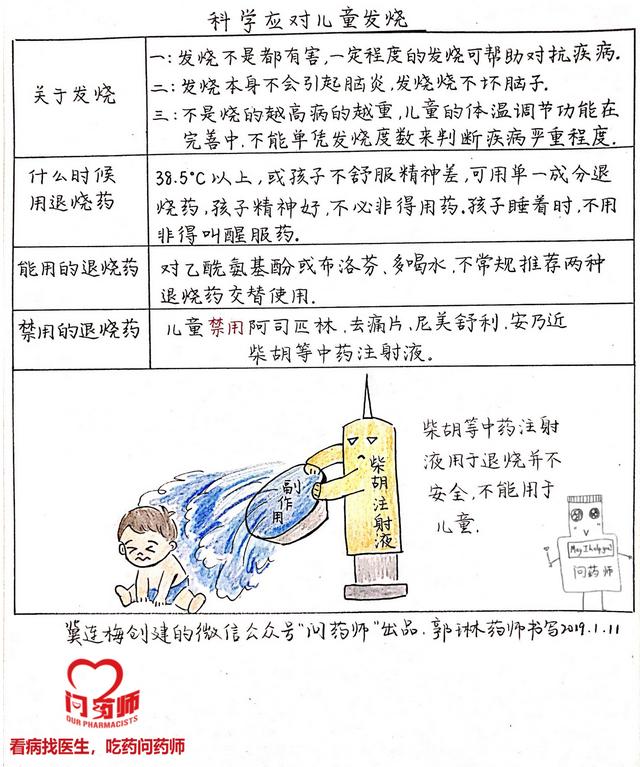 科学应对儿童发烧
关于发烧
一:发烧不是都有害,一定程度的发烧可帮助对抗疾病.
二:发烧本身不会引起脑炎,发烧烧不坏脑子.
三:不是烧的越高病的越重,儿童的体温调节功能在
完善中.不能单凭发烧度数来判断疾病严重程度.
什么时候
用退烧药
38.5°C以上,或孩子不舒服精神差,可用单一成分退
烧药,孩子精神好,不必非得用药.孩子睡着时,不用
非得叫醒服药.
能用的退烧药
对乙酰氨基酚或布洛芬、多喝水.不常规推荐两种
退烧药交替使用.
禁用的退烧药
儿童禁用阿司匹林,去痛片,尼美舒利,安乃近
柴胡等中药注射液。
副作用
柴胡注射液
柴胡等中药注射
液用于退烧并不
安全,不能用于
儿童.
May I help you?
问药师
冀连梅创建的微信公众号"问药师"出品.郭琳药师书写2019.1.11
问药师
OUR PHARMACISTS
看病找医生,吃药问药师